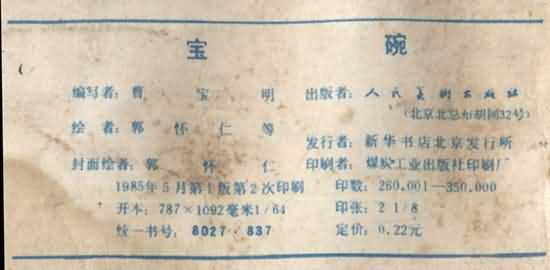 宝 碗
编写者：曹 宝 明 出版者：人民美术出版社
（北京北总布胡同32号）
绘 者：郭 怀 仁 等
发行者：新华书店北京发行所
封面绘者：郭 怀 仁 印刷者：煤炭工业出版社印刷厂
1985年5月第1版第2次印刷 印数：260,001—350,000
开本：787×1092毫米1/64 印张：2 1/8
统一书号：8027·837 定价：0.22元